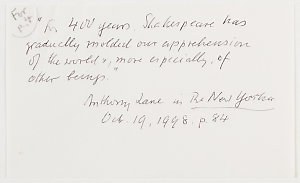 For
"For 400 years Shakespeare has
gradually molded our apprehension
of the world &, more especially, of
other beings."
Anthony Lane in The New Yorker
Oct. 19, 1998. p. 84